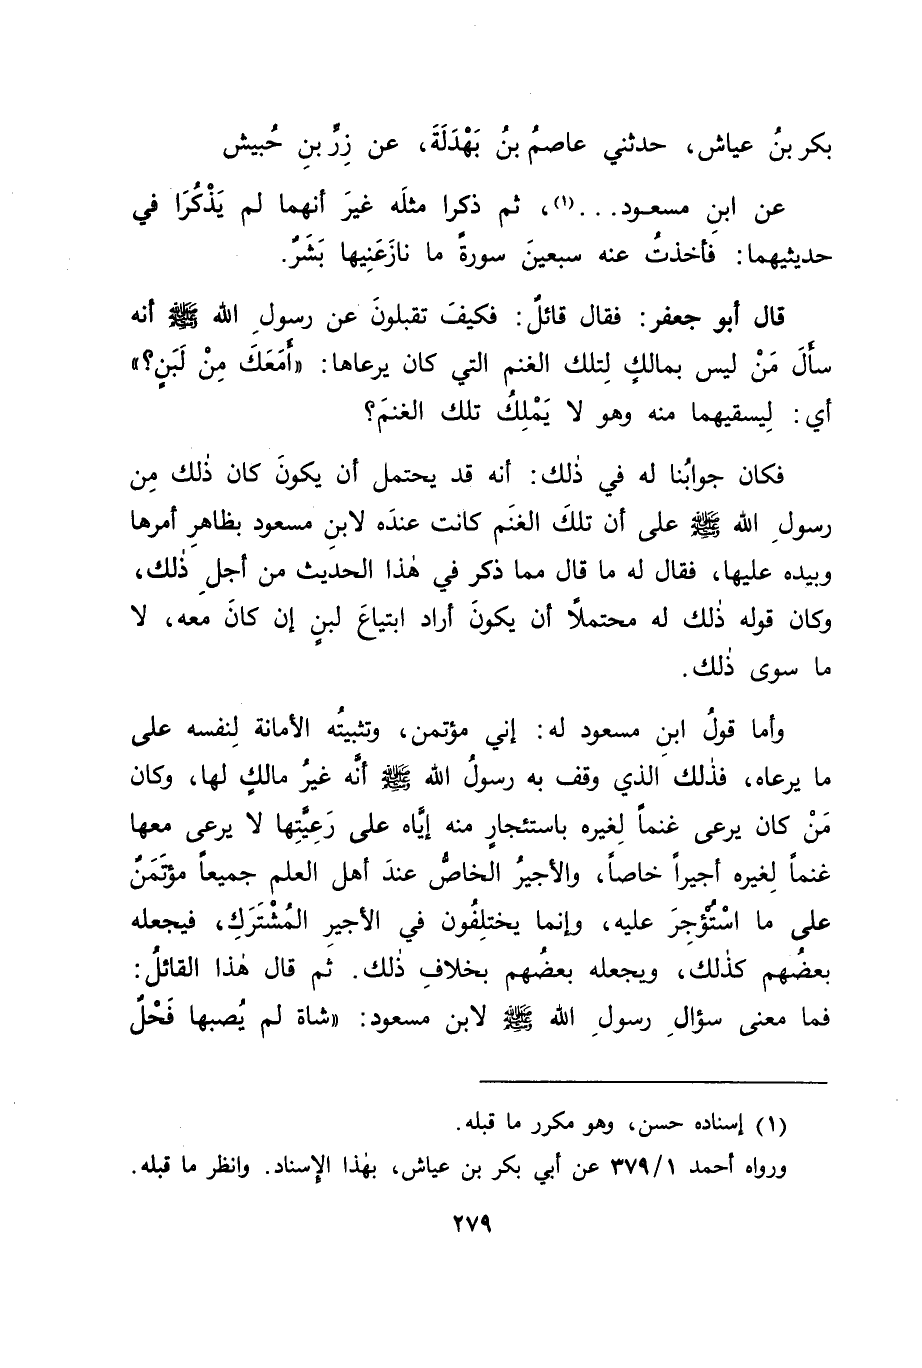 بكر بنُ عياش، حدثني عاصمُ بنُ بَهْدَلَةَ، عن زِرِّ بنِ حُبيش
عن ابنِ مسعود. . .(١)، ثم ذكرا مثلَه غيرَ أنهما لم يَذْكُرَا في
حديثيهما: فأخذتُ عنه سبعينَ سورةً ما نازَعَنِيها بَشَرٌ.
قال أبو جعفر: فقال قائلٌ: فكيفَ تقبلونَ عن رسولِ الله ﷺ أنه
سأَلَ مَنْ ليس بمالكٍ لِتلك الغنم التي كان يرعاها: «أَمَعَكَ مِنْ لَبَنٍ؟»
أي: لِيسقيهما منه وهو لا يَمْلِكُ تلك الغنمَ؟
فكان جوابُنا له في ذٰلك: أنه قد يحتمل أن يكونَ كان ذٰلك مِن
رسولِ الله ﷺ على أن تلكَ الغنَم كانت عندَه لابنِ مسعود بظاهرِ أمرها
وبيده عليها، فقال له ما قال مما ذكر في هٰذا الحديث من أجلِ ذٰلك،
وكان قوله ذٰلك له محتملاً أن يكونَ أراد ابتياعَ لبنٍ إن كانَ معه، لا
ما سوى ذٰلك.
وأما قولُ ابنِ مسعود له: إني مؤتمن، وتثبيتُه الأمانة لِنفسه على
ما يرعاه، فذٰلك الذي وقف به رسولُ الله ﷺ أنَّه غيرُ مالكٍ لها، وكان
مَنْ كان يرعى غنماً لِغيره باستئجارٍ منه إيَّاه على رَعِيَّتِها لا يرعى معها
غنماً لِغيره أجيراً خاصاً، والأجيرُ الخاصُّ عندَ أهل العلم جميعاً مؤتَمَنٌ
على ما اسْتُؤْجِرَ عليه، وإنما يختلِفُون في الأجيرِ المُشْتَرَكِ، فيجعله
بعضُهم كذٰلك، ويجعله بعضُهم بخلافِ ذٰلك. ثم قال هٰذا القائلُ:
فما معنى سؤالِ رسولِ الله ﷺ لابن مسعود: «شاة لم يُصبها فَحْلٌ
(١) إسناده حسن، وهو مكرر ما قبله.
ورواه أحمد ٣٧٩/١ عن أبي بكر بن عياش، بهٰذا الإِسناد. وانظر ما قبله.
٢٧٩